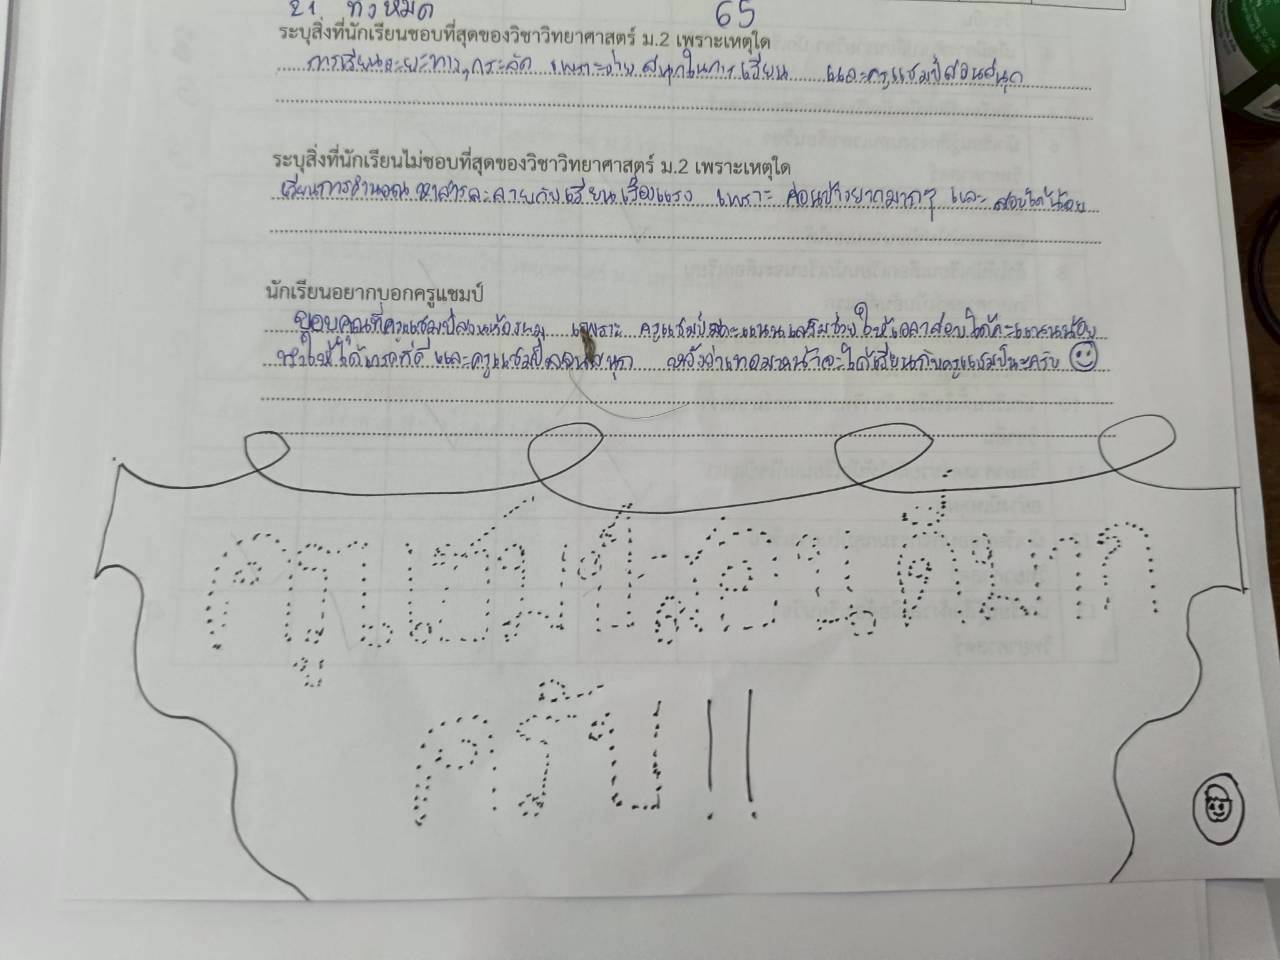 21 ทั้งหมด 65
ระบุสิ่งที่นักเรียนชอบที่สุดของวิชาวิทยาศาสตร์ ม.2 เพราะเหตุใด
การเรียนระยะทาง,กระจัด เพราะง่าย สนุกในการเรียน และครูแชมป์สอนสนุก
ระบุสิ่งที่นักเรียนไม่ชอบที่สุดของวิชาวิทยาศาสตร์ ม.2 เพราะเหตุใด
เรียนการคำนวณ หาสารละลายกับเรียนเรื่องแรง เพราะ ค่อนข้างยากมากๆ และ สอบได้น้อย
นักเรียนอยากบอกครูแชมป์
ขอบคุณที่ครูแชมป์สอนห้องผม เพราะ ครูแชมป์มีคะแนนเสริมช่วยให้เวลาสอบได้คะแนนน้อย
ทำให้ได้เกรดที่ดี และครูแชมป์สอนสนุก หวังว่าเทอมหน้าจะได้เรียนกับครูแชมป์นะครับ
ครูแชมป์สอนดีมาก
ครับ!!